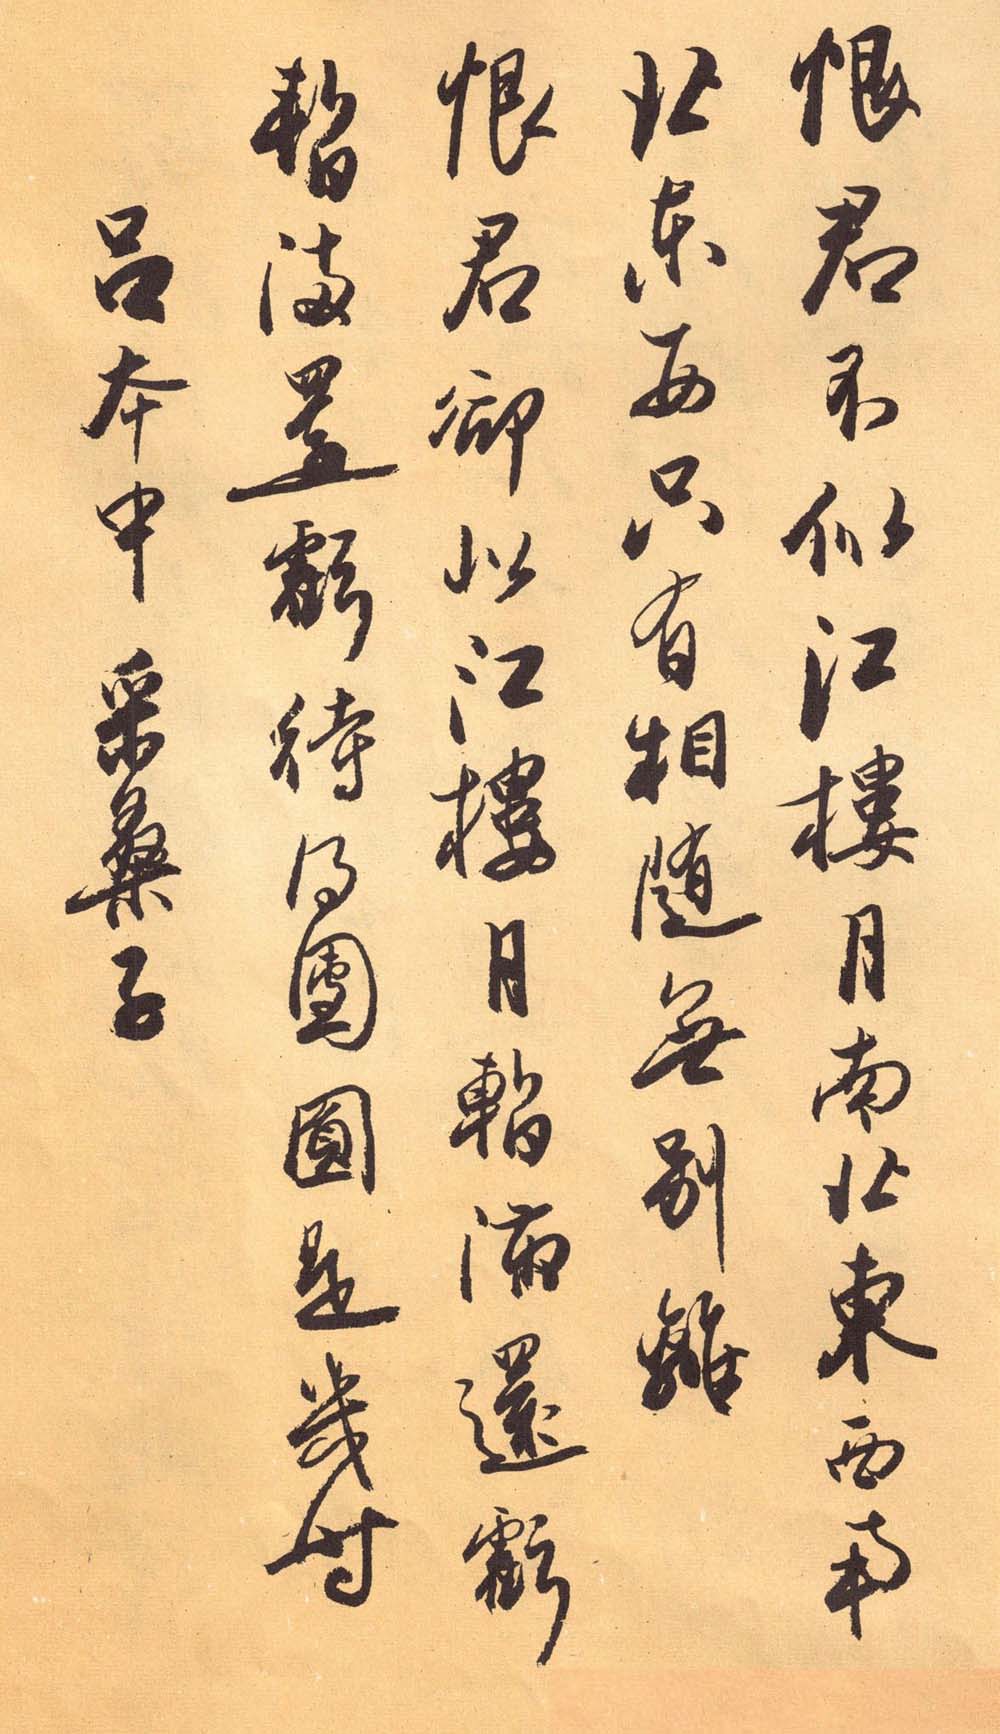 恨君不似江樓月南北東西南
北東西只有相随無别離
恨君卻似江樓月暫滿還虧
暫滿還虧待得團圓是幾时
吕本中采桑子